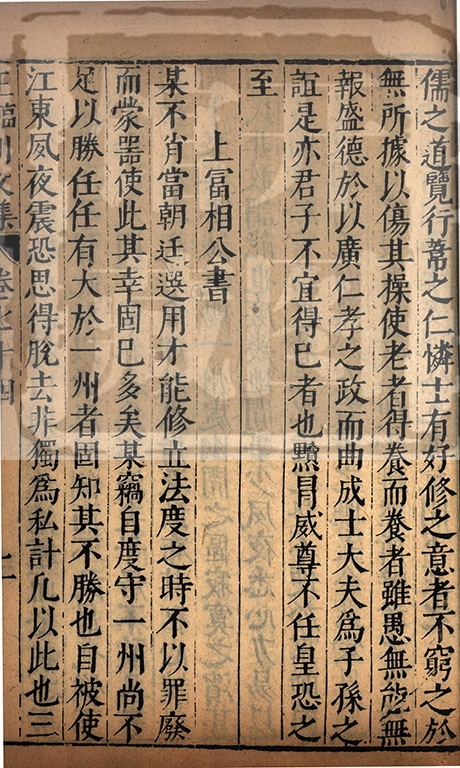 儒之道覽行葦之仁憐士有好修之意者不窮之於
無所據以傷其操使老者得養而養者雖愚無能無
報盛德於以廣仁孝之政而曲成士大夫為子孫之
誼是亦君子不宜得已者也黷冒威尊不任皇恐之
至
上冨相公書
某不肖當朝廷選用才能修立法度之時不以罪廢
而蒙器使此其幸固已多矣某竊自度守一州尚不
足以勝任任有大於一州者固知其不勝也自被使
江東夙夜震恐思得脫去非獨為私計凡以此也三
王臨川文集 卷七十四